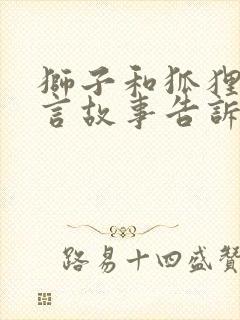 獅子和狐狸
言故事告訴
路易十四盛贊